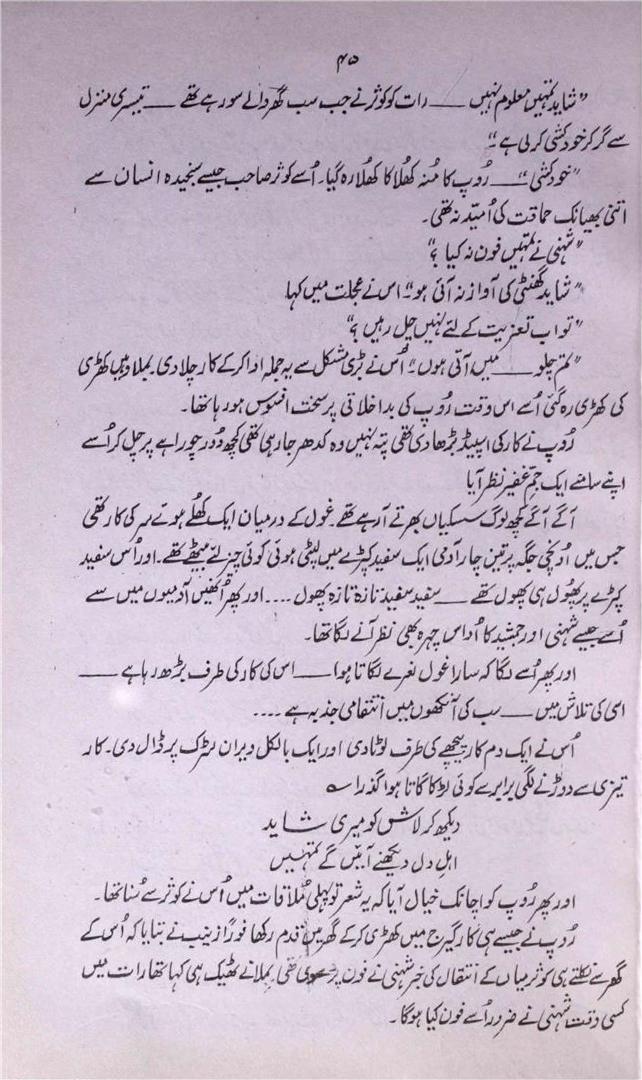 ۴۵
”شاید تمہیں معلوم نہیں ــــ رات کو کوثر نے جب سب گھر والے سو رہے تھے ــــ تیسری منزل
سے گر کر خود کشی کر لی ہے“
”خود کشی“ ــــ رُوپ کا منہ کھلا کا کھلا رہ گیا۔ اُسے کوثر صاحب جیسے سنجیدہ انسان سے
اتنی بھیانک حماقت کی اُمید نہ تھی۔
”شہنی نے تمہیں فون نہ کیا؟“
”شاید گھنٹی کی آواز نہ آئی ہو“ اس نے عجلت میں کہا
”تو اب تعزیت کے لئے نہیں چل رہیں؟“
”تم چلو ــــ میں آتی ہوں“ اُس نے بڑی مشکل سے یہ جملہ ادا کر کے کار چلا دی۔ بملا وہیں کھڑی
کی کھڑی رہ گئی اُسے اس وقت رُوپ کی بد اخلاقی پر سخت افسوس ہو رہا تھا۔
رُوپ نے کار کی اسپیڈ بڑھا دی تھی پتہ نہیں وہ کدھر جا رہی تھی کچھ دُور چوراہے پر چل کر اُسے
اپنے سامنے ایک جمِّ غفیر نظر آیا
آگے آگے کچھ لوگ سسکیاں بھرتے آ رہے تھے۔ غول کے درمیان ایک کھلے ہوئے سر کی کار تھی
جس میں اُونچی جگہ پر تین چار آدمی ایک سفید کپڑے میں لپٹی ہوئی کوئی چیز لئے بیٹھے تھے۔ اور اُس سفید
کپڑے پر پھول ہی پھول تھے ــــ سفید سفید تازہ تازہ پھول .... اور پھر اُنھیں آدمیوں میں سے
اُسے جیسے شہنی اور جمشید کا اُداس چہرہ بھی نظر آنے لگا تھا۔
اور پھر اُسے لگا کہ سارا غول نعرے لگاتا ہوا ــــ اس کی کار کی طرف بڑھ رہا ہے ــــ
اسی کی تلاش میں ــــ سب کی آنکھوں میں انتقامی جذبہ ہے ....
اُس نے ایک دم کار پیچھے کی طرف لوٹا دی اور ایک بالکل ویران سڑک پر ڈال دی۔ کار
تیزی سے دوڑنے لگی برابر سے کوئی لڑکا گاتا ہوا گذرا ؎
دیکھ کر لاش کو میری شاید
اہلِ دل دیکھنے آئیں گے تمہیں
اور پھر رُوپ کو اچانک خیال آیا کہ یہ شعر تو پہلی ملاقات میں اُس نے کوثر سے سُنا تھا۔
رُوپ نے جیسے ہی کار گیرج میں کھڑی کر کے گھر میں قدم رکھا فوراً زینب نے بتایا کہ اُس کے
گھر سے نکلتے ہی کوثر میاں کے انتقال کی خبر شہنی نے فون پر دی تھی۔ بملا نے ٹھیک ہی کہا تھا رات میں
کسی وقت شہنی نے ضرور اُسے فون کیا ہوگا۔